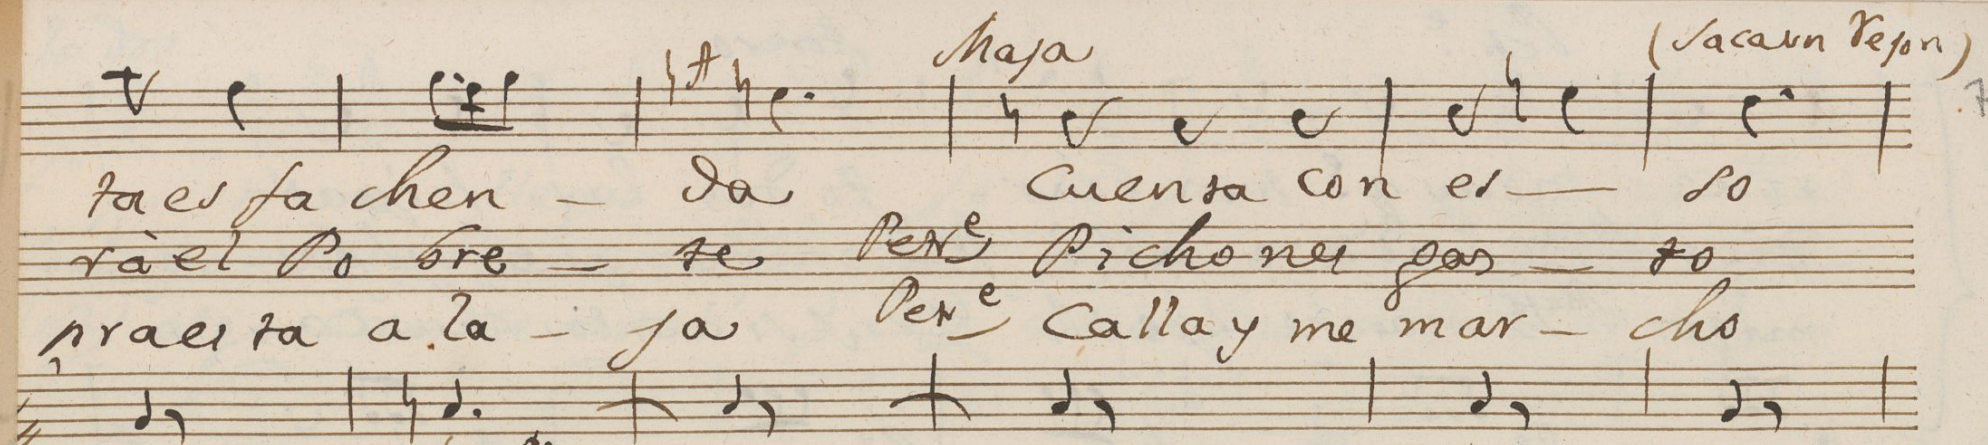 Maja (Sacaun Vejon)
ta es fa chen - da Cuenta con es - so
rà el Po bre - te Pet.e Pichones gas - to
praes ta a la - ja Pet.e Calla y me mar - cho